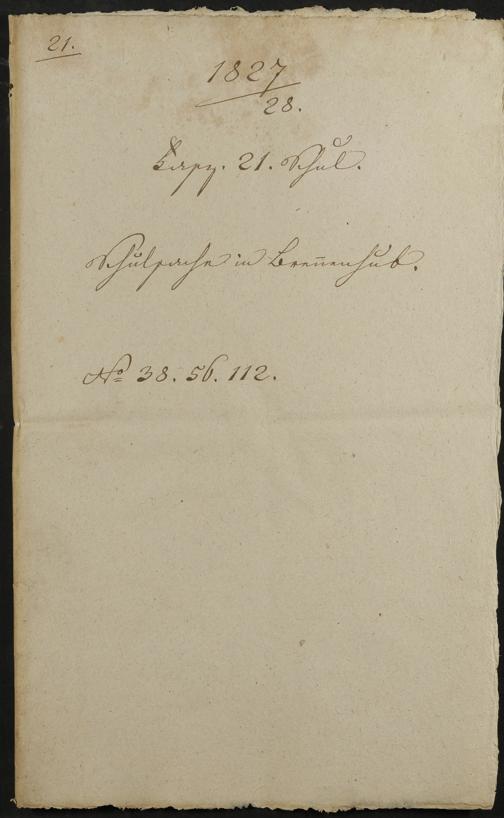 21.
1827
28.
21. Schul.
Schulsache in Brennenhub.
No 38. 56. 112.